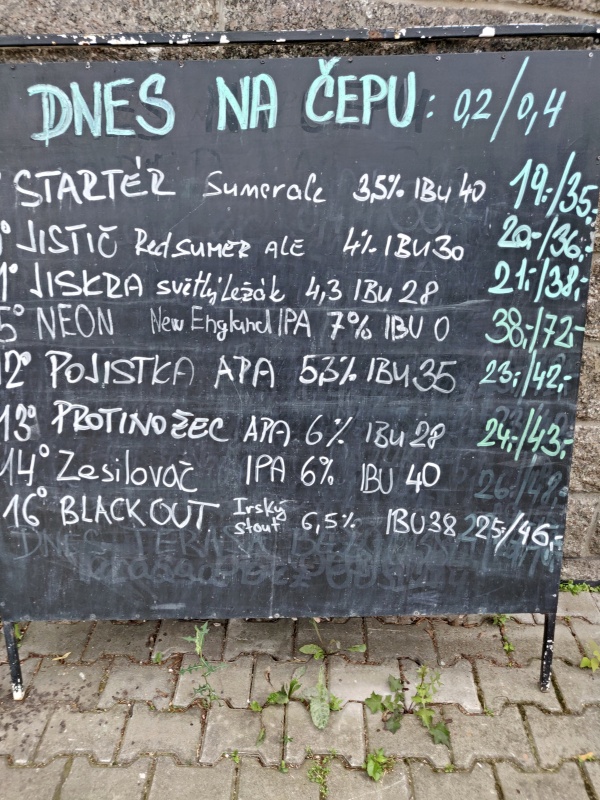 DNES NA ČEPU: 0,2/0,4
° STARTÉR Sumerale 3,5% IBU 40 19,-/35,-
° JISTIČ Red sumer ALE 4% IBU 30 20,-/36,-
1° JISKRA světlý Ležák 4,3 IBU 28 21,-/38,-
5° NEON New England IPA 7% IBU 0 38,-/72,-
12° POJISTKA APA 5,3% IBU 35 23,-/42,-
13° PROTINOŽEC APA 6% IBU 28 24,-/43,-
14° Zesilovač IPA 6% IBU 40 26,-/48,-
16° BLACK OUT Irský stout 6,5% IBU 38 25,-/46,-
DNES